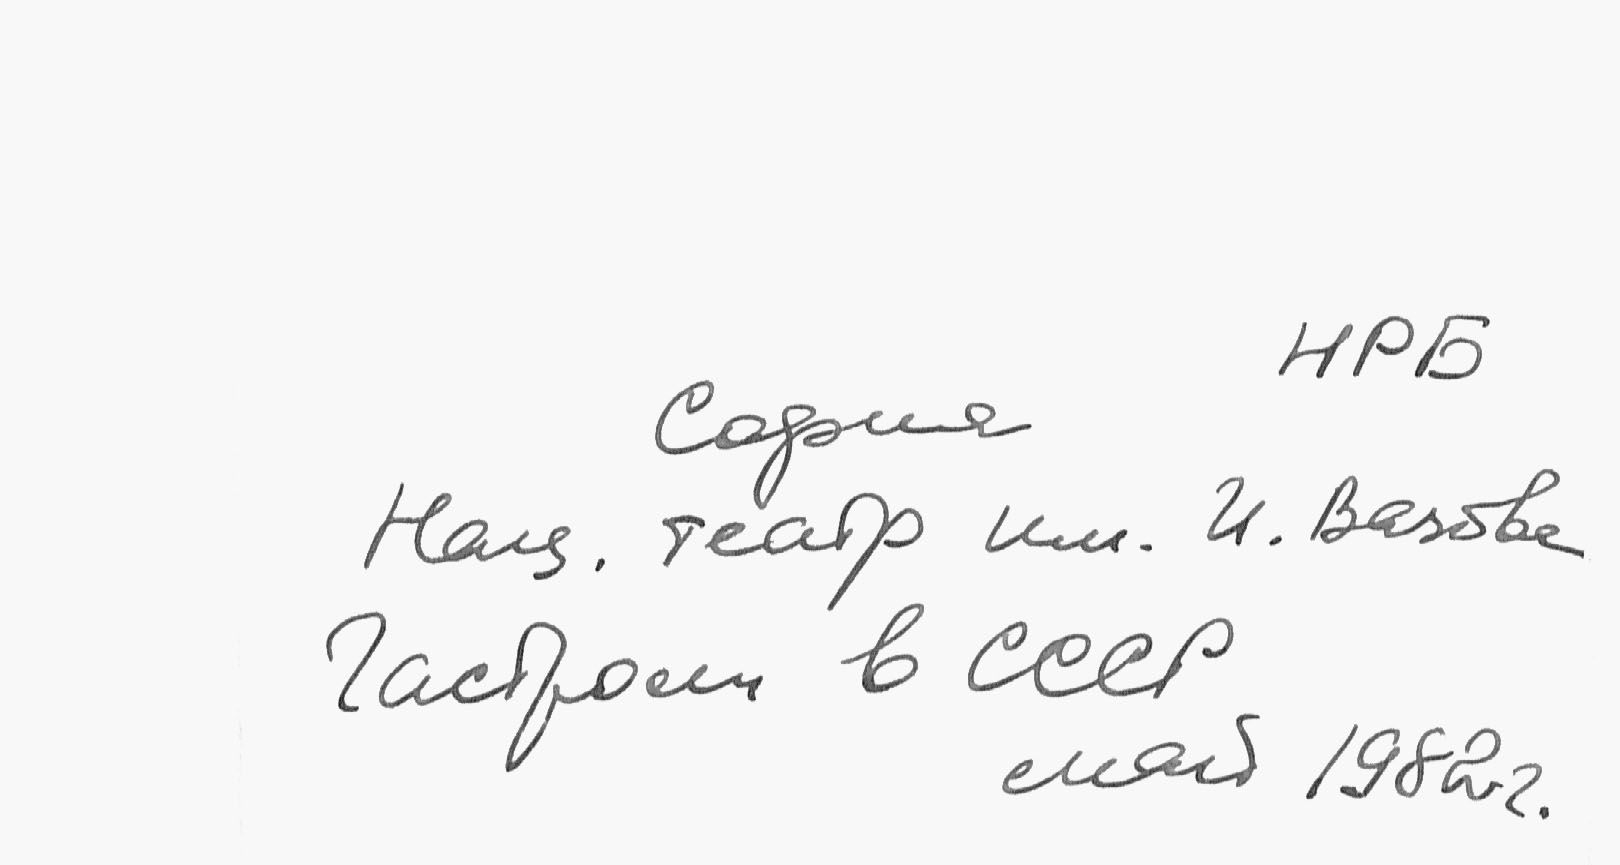 НРБ
София
Нац. театр им. И. Вазова
Гастроли в СССР
май 1982 г.